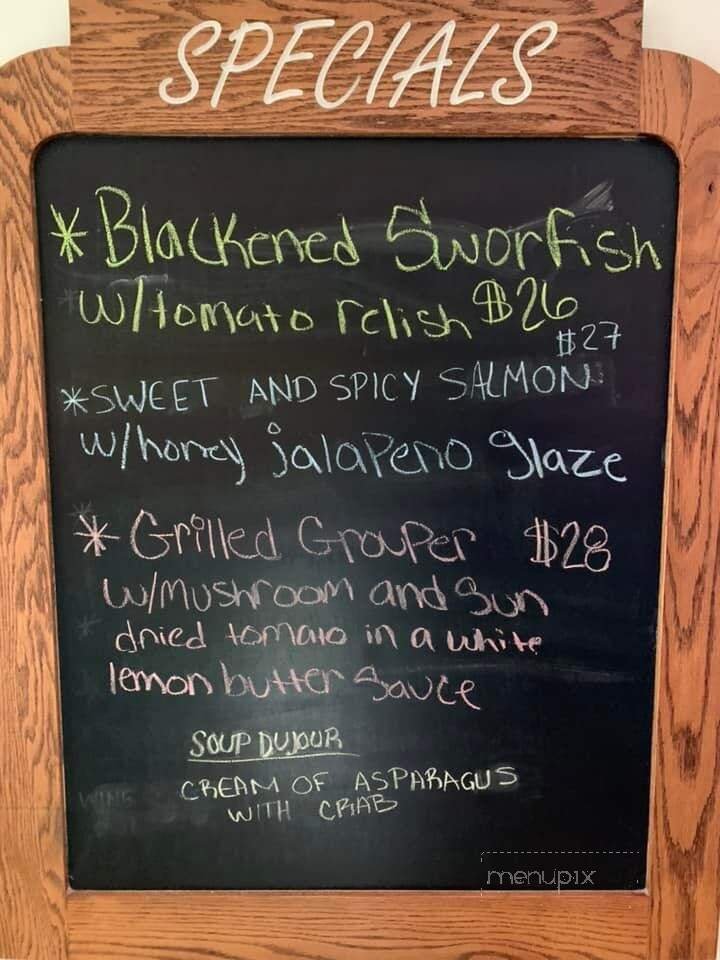 SPECIALS
* Blackened Sworfish
w/tomato relish $26
$27
* SWEET AND SPICY SALMON
w/honey jalapeno glaze
* Grilled Grouper $28
w/mushroom and Sun
dried tomato in a white
lemon butter Sauce
SOUP DUJOUR
CREAM OF ASPARAGUS
WITH CRAB
WINE
menupix